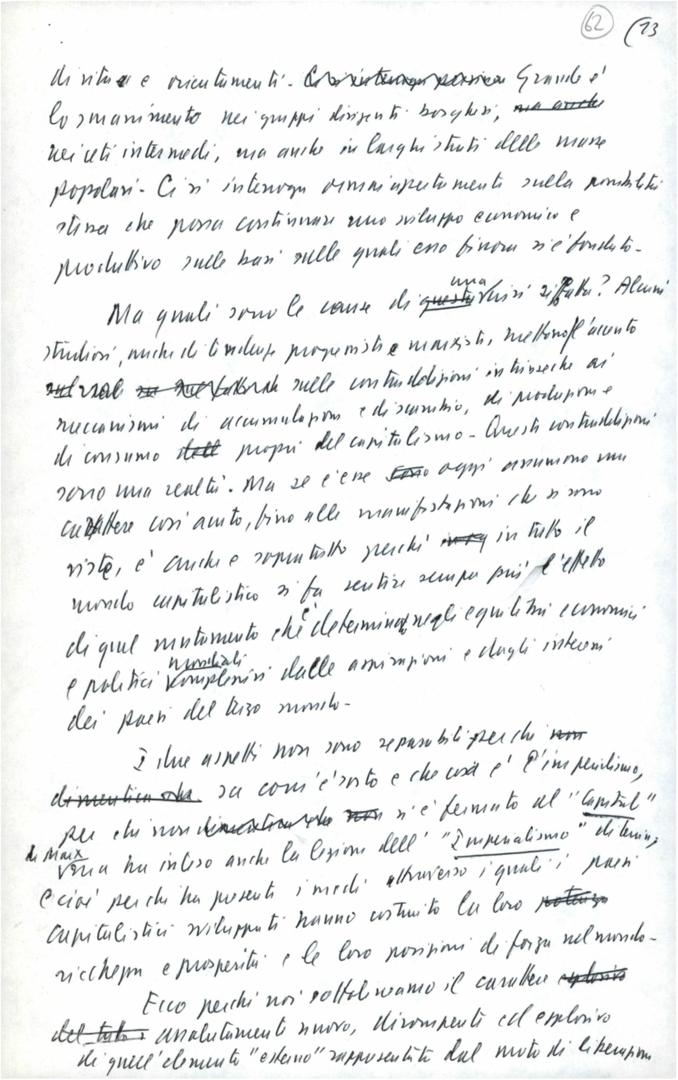 62 (13
di vita e e orientamenti. Grande è
lo smarrimento nei gruppi dirigenti borghesi, ma anche
nei ceti intermedi, ma anche in larghi strati delle masse
popolari. Ci si interroga ormai apertamente sulla possibilità
stessa che possa continuare uno sviluppo economico e
produttivo sulle basi sulle quali esso finora si è fondato.
Ma quali sono le cause di questa una crisi siffatta? Alcuni
studiosi, anche di tendenze progressiste e marxisti, mettono l'accento
sulle contraddizioni intrinseche ai
meccanismi di accumulazione e di scambio, di produzione e
di consumo dell propri del capitalismo. Queste contraddizioni
sono una realtà. Ma se esse sono oggi assumono un
carattere così acuto, fino alle manifestazioni che si sono
viste, è anche e soprattutto perché in tutto il
mondo capitalistico si fa sentire sempre più l'effetto
di quel mutamento che è determinato negli equilibri economici
e politici mondiali complessivi dalle aspirazioni e dagli interessi
dei paesi del terzo mondo.
I due aspetti non sono separabili per chi non
dimentica che sa com'è sorto e che cosa è l'imperialismo,
per chi non dimentica che non si è fermato al "Capital"
di Marx ma ha inteso anche la lezione dell' "Imperialismo" di Lenin,
e cioè per chi ha presenti i modi attraverso i quali i paesi
capitalistici sviluppati hanno costruito la loro potenza
ricchezza e prosperità e le loro posizioni di forza nel mondo.
Ecco perché noi sottolineiamo il carattere esplosivo
del tutto assolutamente nuovo, dirompente ed esplosivo
di quell'elemento "esterno" rappresentato dal moto di liberazione